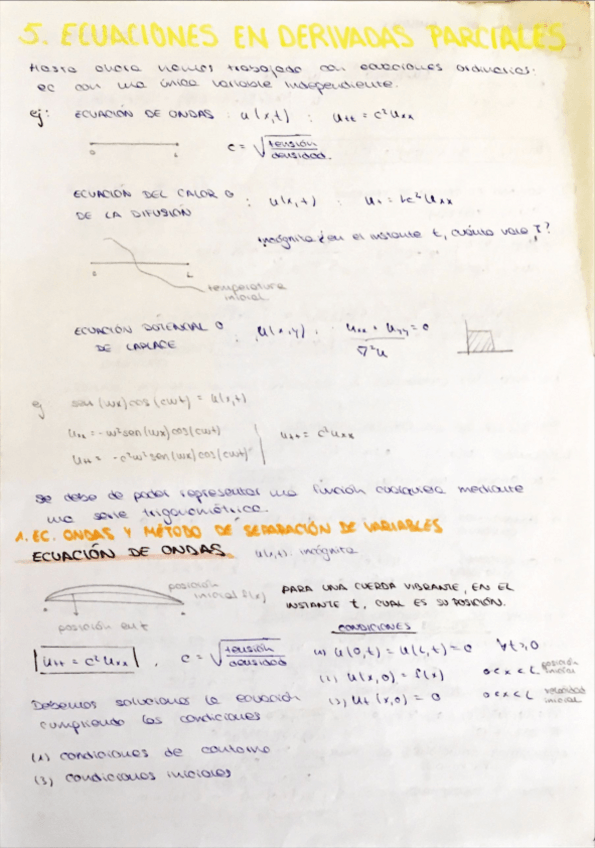 5. ECUACIONES EN DERIVADAS PARCIALES
Hasta ahora hemos trabajado con ecuaciones ordinarias:
ec con una única variable independiente.
ej: ECUACIÓN DE ONDAS : u(x,t) : u_tt = c²u_xx
0 L c = √(tensión/densidad)
ECUACIÓN DEL CALOR O : u(x,t) : u_t = kc²u_xx
DE LA DIFUSIÓN
incógnita ¿en el instante t, cuánto vale T?
0 L
temperatura
inicial
ECUACIÓN POTENCIAL O : u(x,y) : u_xx + u_yy = 0
DE LAPLACE ∇²u
ej sen(wx)cos(cwt) = u(x,t)
u_xx = -w²sen(wx)cos(cwt)
u_tt = c²u_xx
u_tt = -c²w²sen(wx)cos(cwt)
Se debe de poder representar una función cualquiera mediante
una serie trigonométrica.
1. EC. ONDAS Y MÉTODO DE SEPARACIÓN DE VARIABLES
ECUACIÓN DE ONDAS u(x,t) incógnita
posición
inicial f(x)
posición en t
PARA UNA CUERDA VIBRANTE, EN EL
INSTANTE t, CUAL ES SU POSICIÓN.
CONDICIONES:
u_tt = c²u_xx , c = √(tensión/densidad)
(1) u(0,t) = u(L,t) = 0 ∀t≥0
(2) u(x,0) = f(x) 0<x<L posición inicial
(3) u_t(x,0) = 0 0<x<L velocidad inicial
Debemos solucionar la ecuación
cumpliendo las condiciones
(1) condiciones de contorno
(3) condiciones iniciales